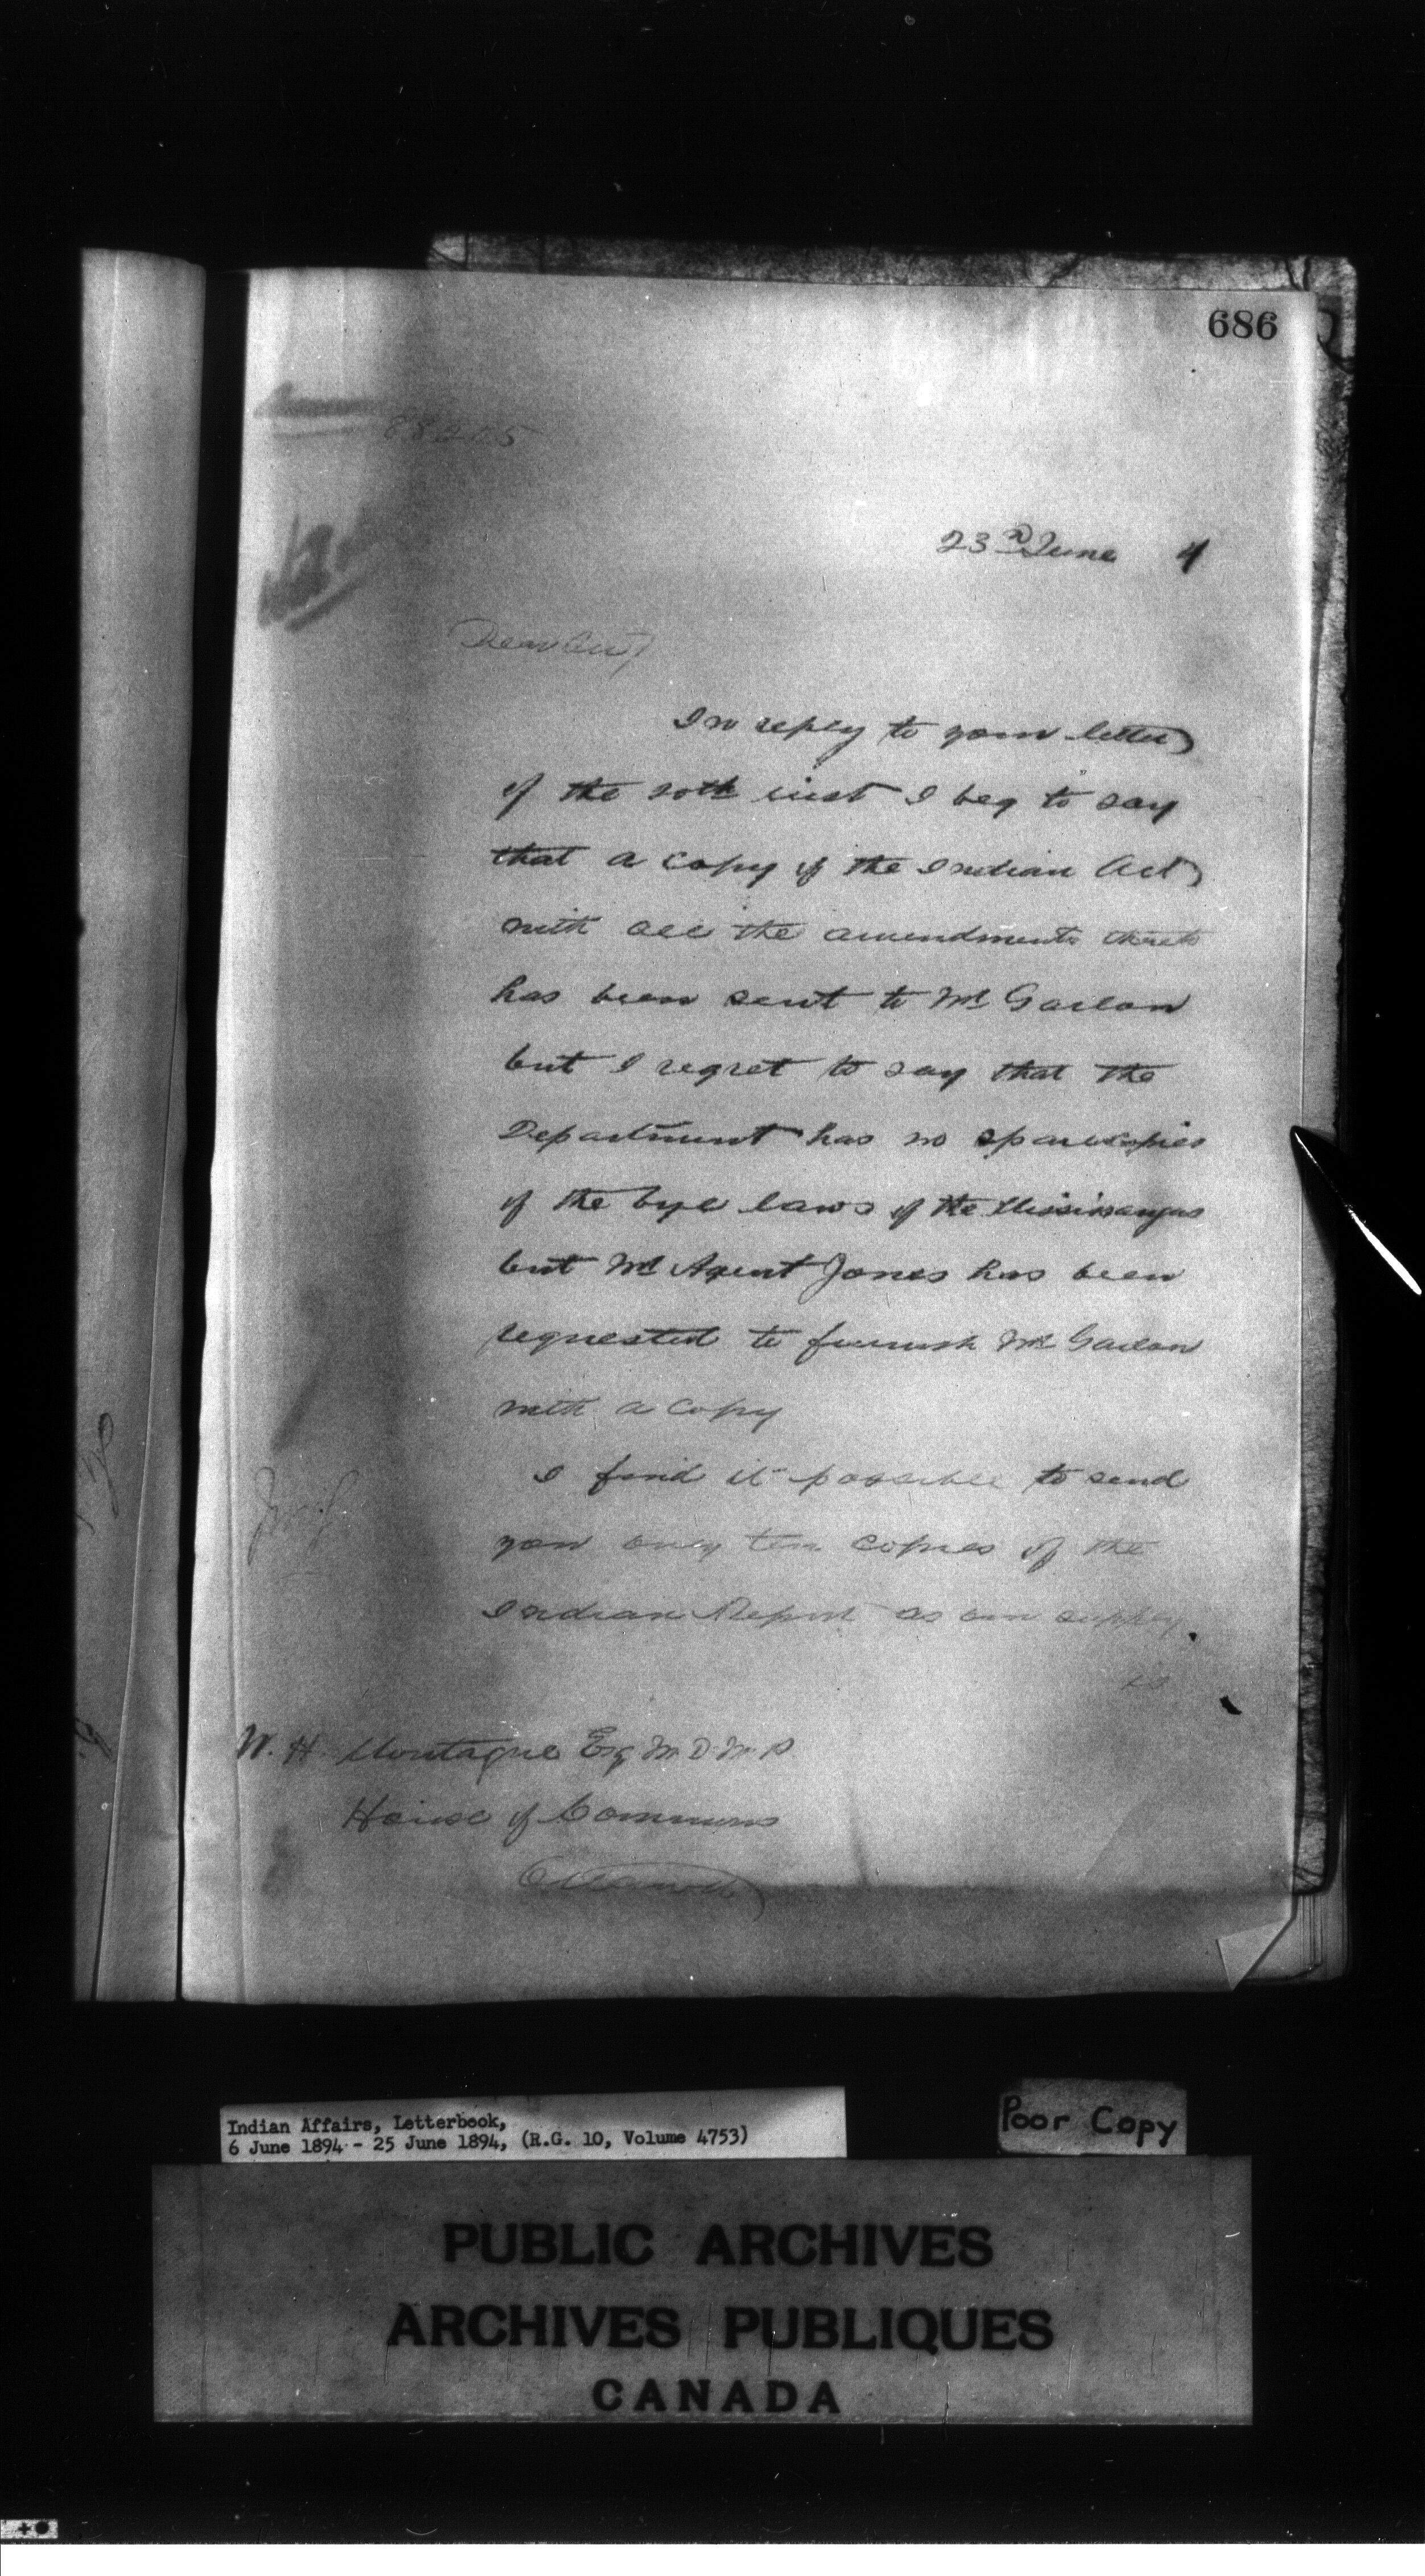 686
23rd June 4
Dear Sir,
In reply to your letter
of the 20th inst I beg to say
that a copy of the Indian Act
with all the amendments thereto
has been sent to Mr
but I regret to say that the
Department has no spare copies
of the bye laws of the Mississaugas
but Mr Agent Jones has been
requested to furnish Mr
with a copy
I find it possible to send
you only ten copies of the
Indian Report as our supply
is
W. H. Montague Esq M.D. M.P
House of Commons
Ottawa
Indian Affairs, Letterbook,
6 June 1894 - 25 June 1894, (R.G. 10, Volume 4753)
Poor Copy
PUBLIC ARCHIVES
ARCHIVES PUBLIQUES
CANADA